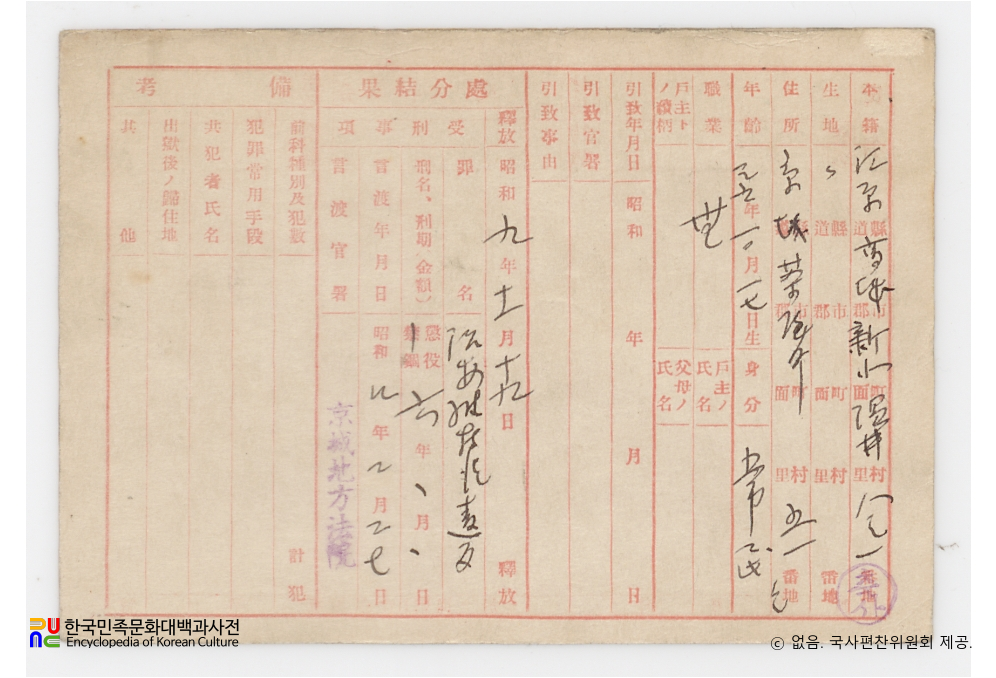 本籍 江原道 高城郡 新北面 温井里 番地
生地 〃 道縣 郡市 面町 里村 番地
住所 京城 茶屋町 五一 番地
年齡 年一〇月一七日生
身分 常民
職業 無
戶主ノ氏名
戶主トノ續柄
父母ノ氏名
引致年月日 昭和 年 月 日
引致官署
引致事由
處分結果
釋放 昭和九年十一月十九日 釋放
受刑事項
罪名 治安維持法違反
刑名、刑期(金額) 懲役 六年 、月 、日
言渡年月日 昭和 年二月二七日
言渡官署 京城地方法院
備考
前科種別及犯數 計 犯
犯罪常用手段
共犯者氏名
出獄後ノ歸住地
其他
한국민족문화대백과사전
Encyclopedia of Korean Culture
ⓒ 없음. 국사편찬위원회 제공.